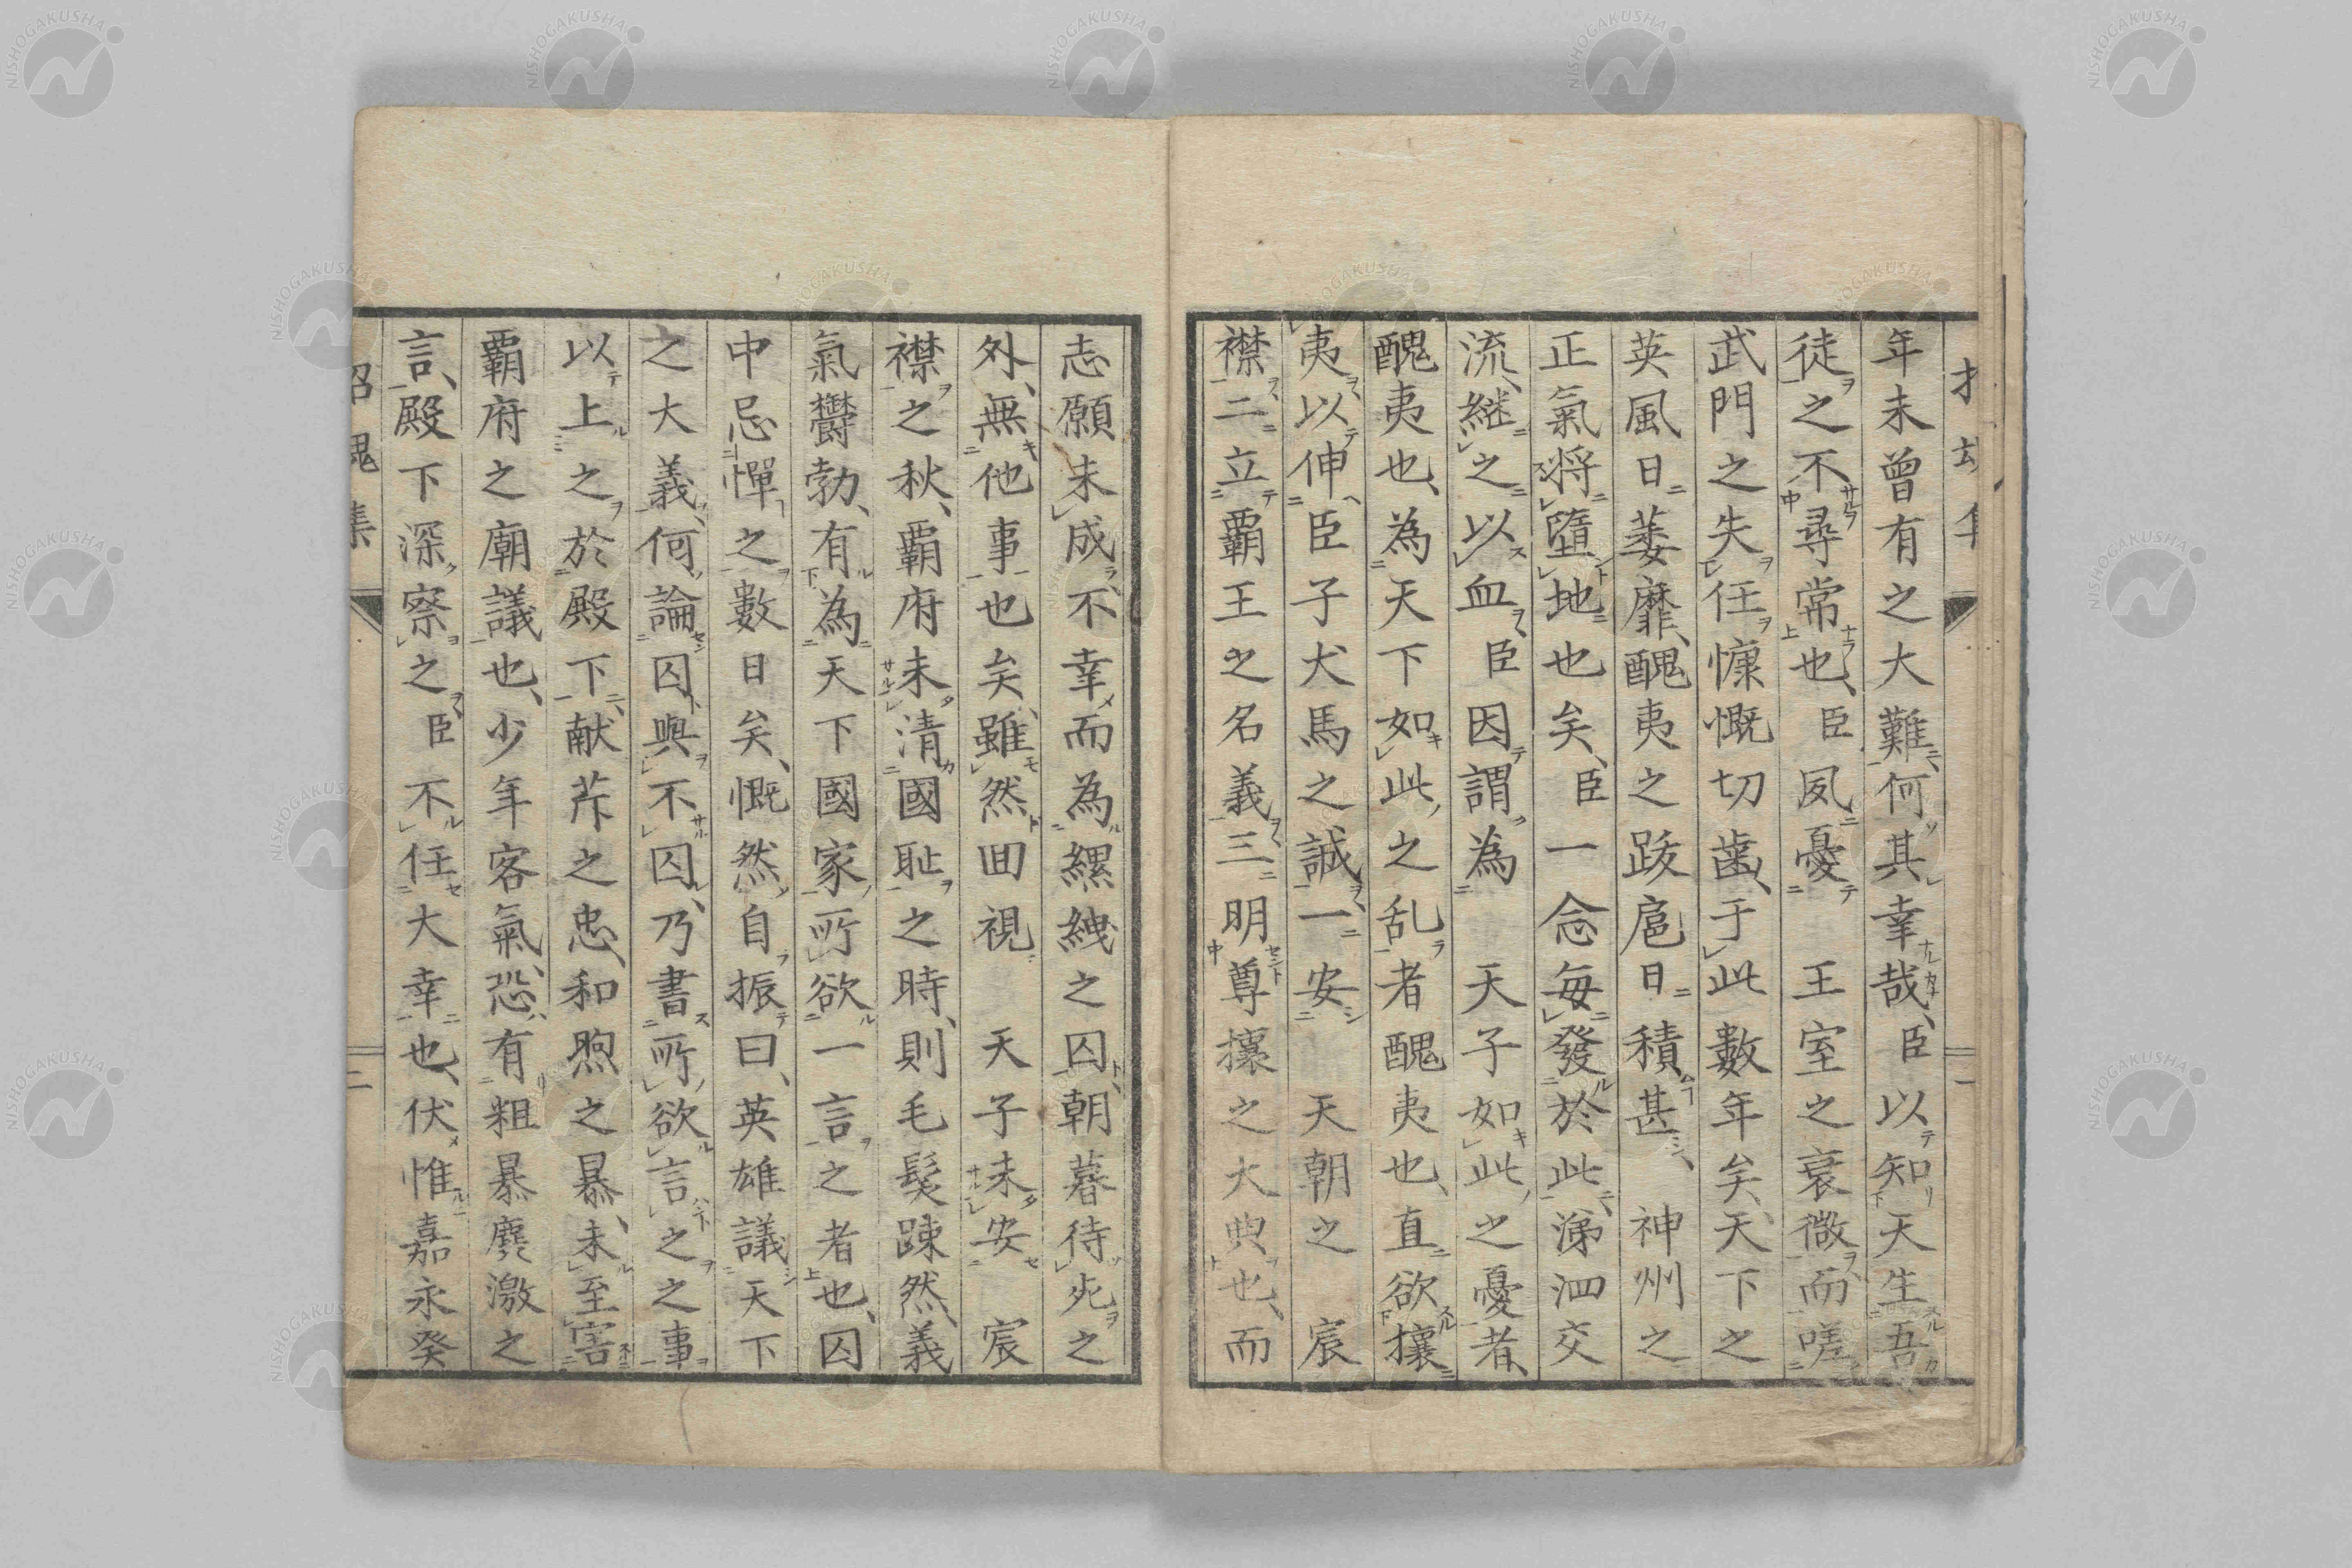 年未曾有之大難何其幸哉、臣以知天生吾
徒之不尋常也、臣夙憂　王室之衰微而嗟
武門之失任慷慨切歯、于此數年矣、天下之
英風日萎靡、醜夷之跋扈日積甚、　神州之
正氣将墮地也矣、臣一念毎發於此、涕泗交
流、継之以血、臣因謂為　天子如此之憂者、
醜夷也、為天下如此之乱者醜夷也、直欲攘
夷、以伸臣子犬馬之誠、一安　天朝之　宸
襟、二立覇王之名義、三明尊攘之大典也、而
志願未成不幸而為縲絏之囚、朝暮待死之
外、無他事也矣、雖然回視　天子未安　宸
襟之秋、覇府未清國耻之時、則毛髪踈然、義
氣欝勃、有為天下國家所欲一言之者也、囚
中忌憚之數日矣、慨然自振曰、英雄議天下
之大義、何論囚與不囚、乃書所欲言之之事
以上之於殿下、献芹之忠、和煦之暴、未至害
覇府之廟議也、少年客氣、恐有粗暴麁激之
言、殿下深察之、臣不任大幸也、伏惟嘉永癸
招魂集
二
NISHOGAKUSHA